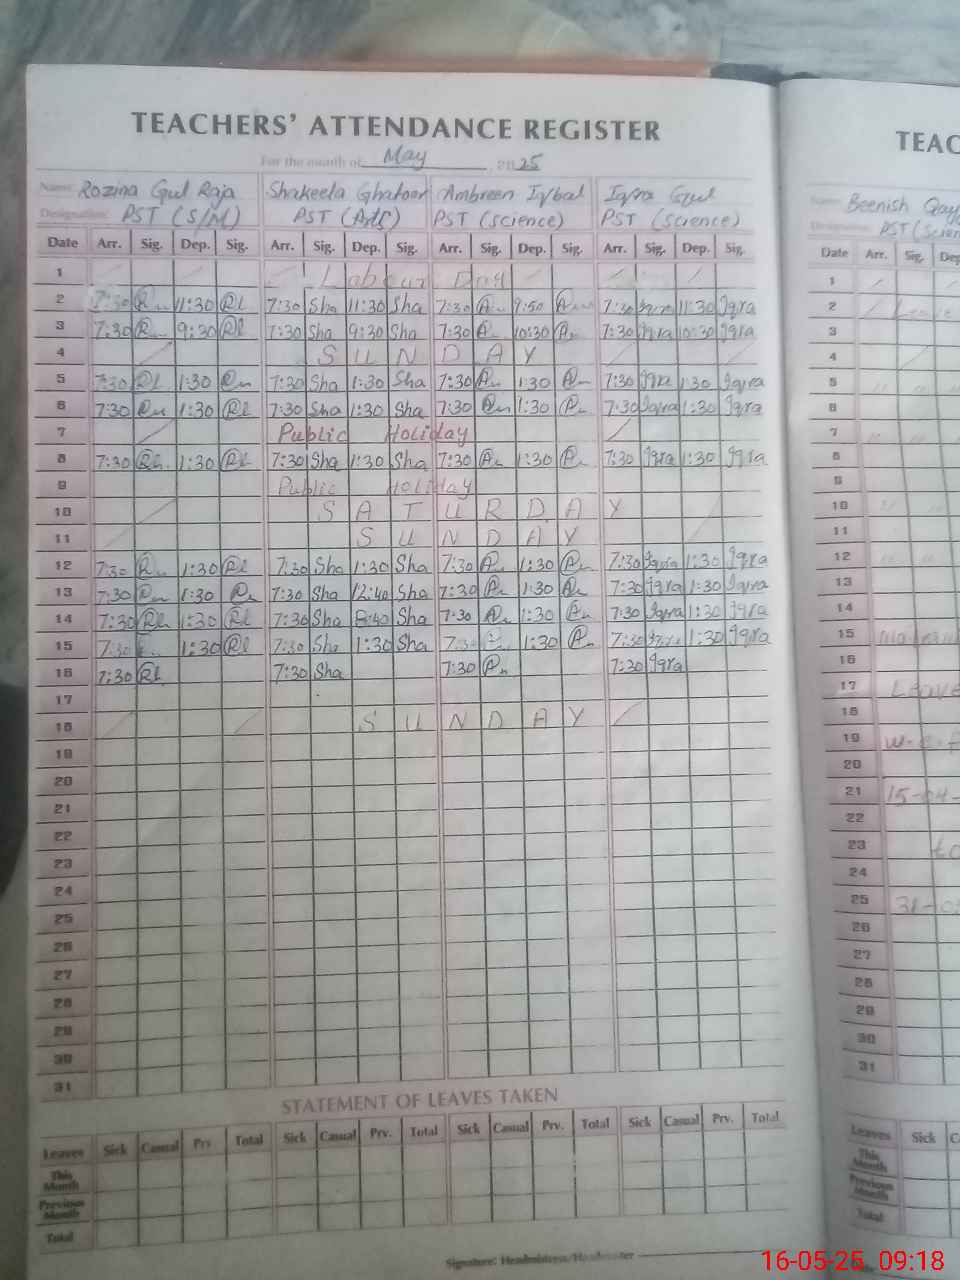 TEACHERS' ATTENDANCE REGISTER
TEAC
For the month of May, 2025
Name: Rozina Gul Raja Shakeela Ghafoor Ambreen Iqbal Iqra Gul
Designation: PST (S/M) PST (Arts) PST (Science) PST (Science)
Name: Beenish Qay
Designation: PST (Scien
Date Arr. Sig. Dep. Sig. Arr. Sig. Dep. Sig. Arr. Sig. Dep. Sig. Arr. Sig. Dep. Sig.
1 Labour Day
2 7:30 11:30 7:30 Sha 11:30 Sha 7:30 9:50 7:30 Iqra 11:30 Iqra
3 7:30 9:30 7:30 Sha 9:30 Sha 7:30 10:30 7:30 Iqra 10:30 Iqra
4 SUNDAY
5 7:30 1:30 7:30 Sha 1:30 Sha 7:30 1:30 7:30 Iqra 1:30 Iqra
6 7:30 1:30 7:30 Sha 1:30 Sha 7:30 1:30 7:30 Iqra 1:30 Iqra
7 Public Holiday
8 7:30 1:30 7:30 Sha 1:30 Sha 7:30 1:30 7:30 Iqra 1:30 Iqra
9 Public Holiday
10 SATURDAY
11 SUNDAY
12 7:30 1:30 7:30 Sha 1:30 Sha 7:30 1:30 7:30 Iqra 1:30 Iqra
13 7:30 1:30 7:30 Sha 12:40 Sha 7:30 1:30 7:30 Iqra 1:30 Iqra
14 7:30 1:30 7:30 Sha 8:40 Sha 7:30 1:30 7:30 Iqra 1:30 Iqra
15 7:30 1:30 7:30 Sha 1:30 Sha 7:30 1:30 7:30 Iqra 1:30 Iqra
16 7:30 7:30 Sha 7:30 7:30 Iqra
17
18 SUNDAY
19
20
21
22
23
24
25
26
27
28
29
30
31
STATEMENT OF LEAVES TAKEN
Leaves Sick Casual Prv. Total Sick Casual Prv. Total Sick Casual Prv. Total Sick Casual Prv. Total
This Month
Previous Month
Total
Signature: Headmistress/Headmaster
Date Arr. Sig. Dep
1
2
3
4
5
6
7
8
9
10
11
12
13
14
15
16
17 Leave
18
19 w.e.f
20
21 15-04-
22
23 to
24
25 31-05
26
27
28
29
30
31
Leaves Sick C
This Month
Previous Month
Total
16-05-25 09:18